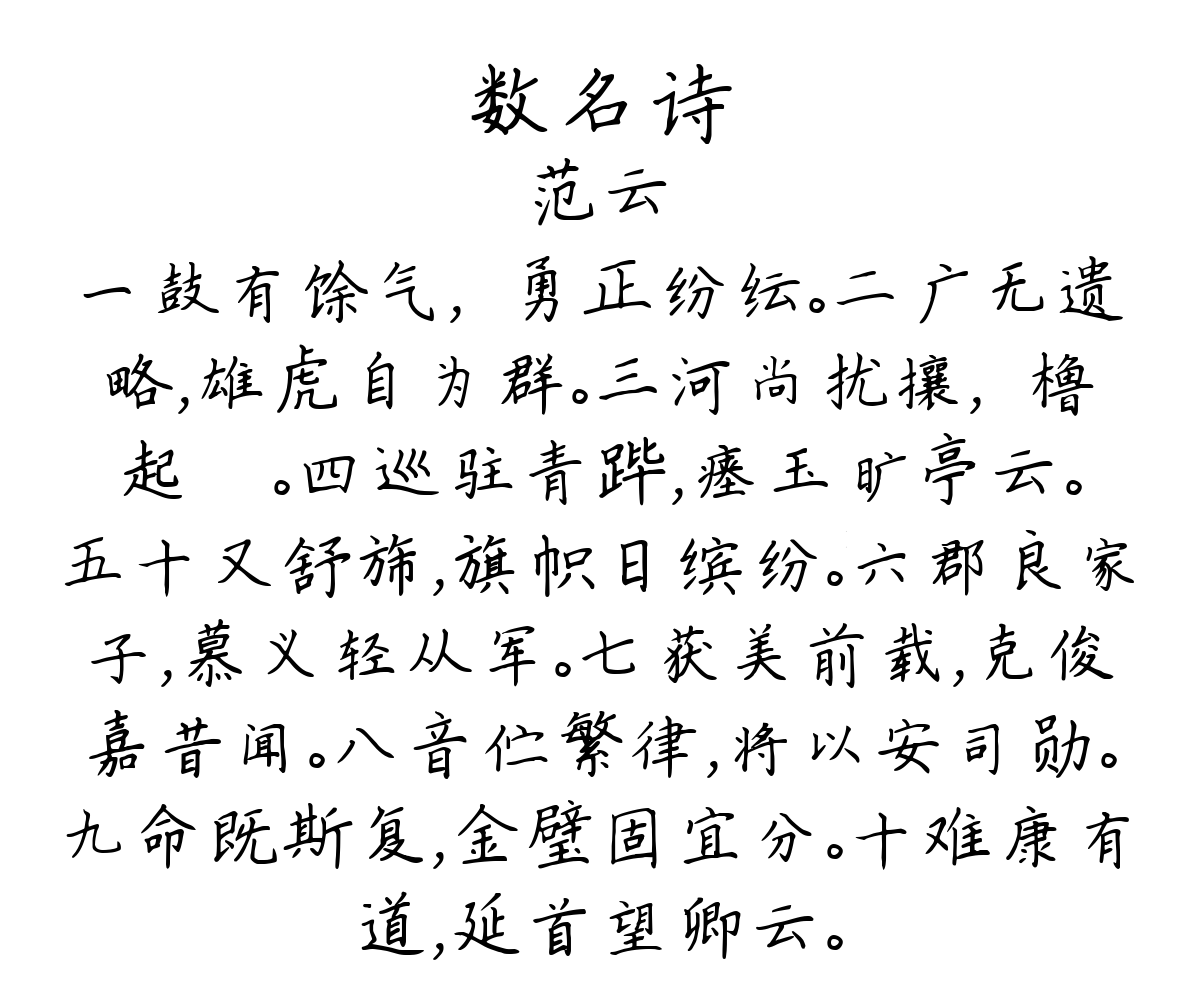 数名诗
范云
一鼓有馀气，勇正纷纭。二广无遗
略,雄虎自为群。三河尚扰攘，橹
起　。四巡驻青跸,瘗玉旷亭云。
五十又舒斾,旗帜日缤纷。六郡良家
子,慕义轻从军。七获美前载,克俊
嘉昔闻。八音伫繁律,将以安司勋。
九命既斯复,金璧固宜分。十难康有
道,延首望卿云。